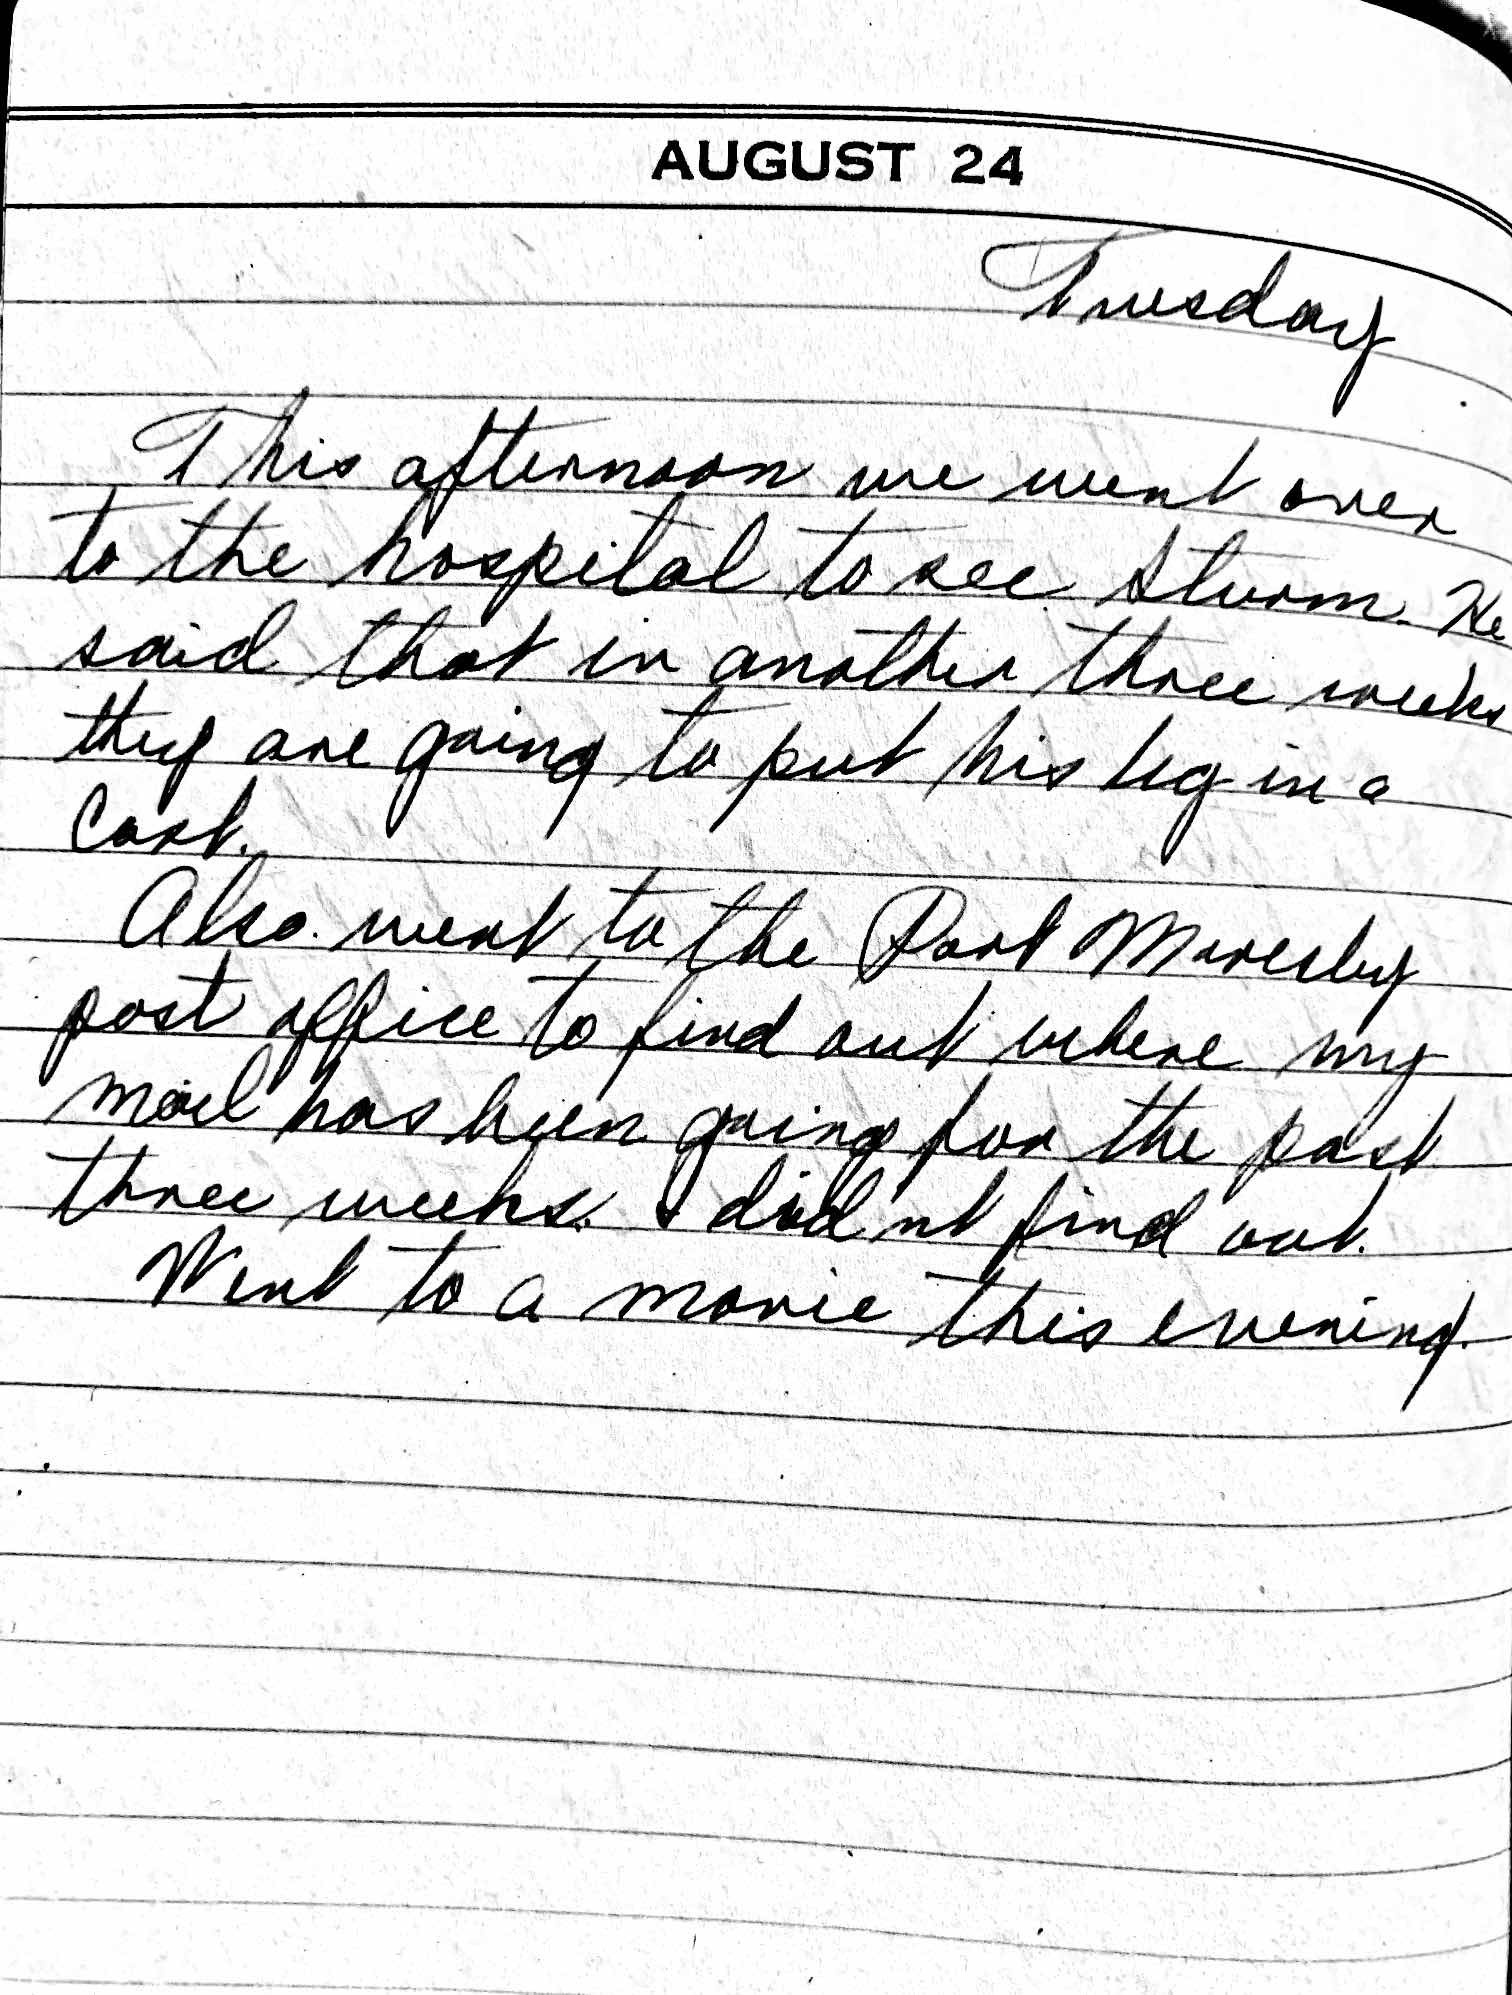 AUGUST 24
Tuesday
This afternoon we went over
to the hospital to see Sturm. He
said that in another three weeks
they are going to put his leg in a
Cast.
Also went to the Port Moresby
post office to find out where my
mail has been going for the past
three weeks. I didnt find out.
Went to a movie this evening.